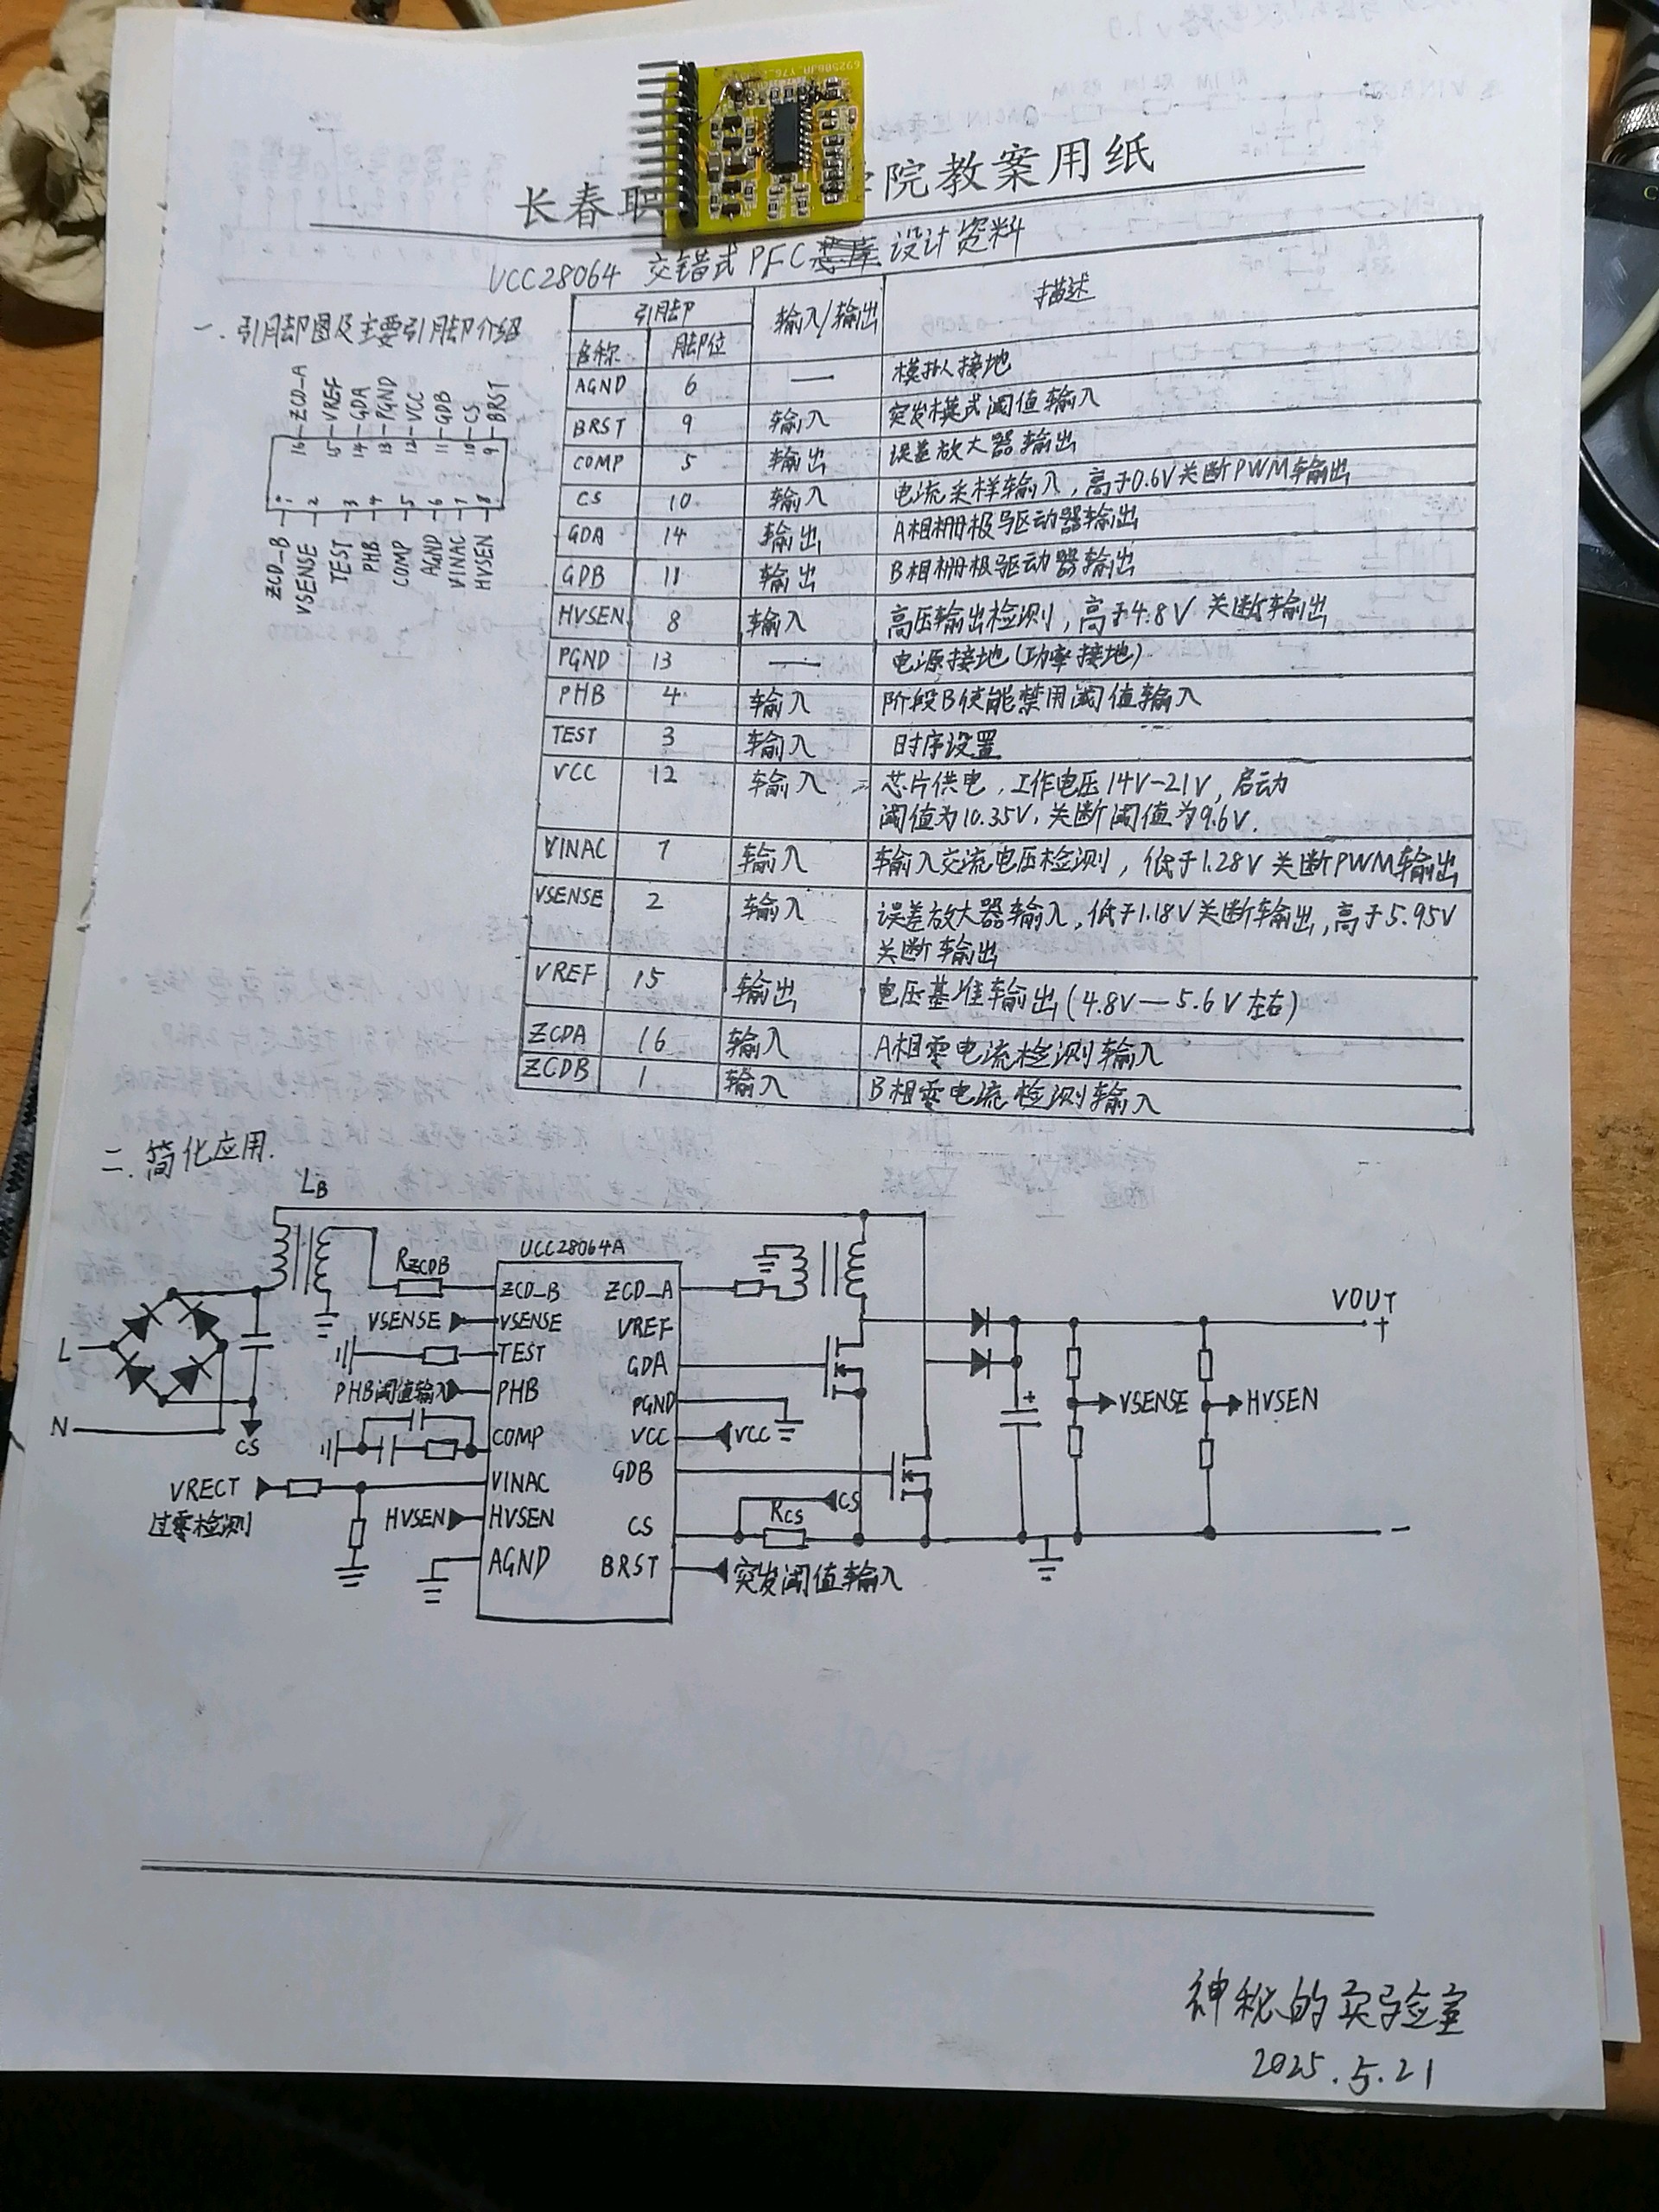 长春职 学院教案用纸
UCC28064 交错式PFC 设计资料
一.引脚图及主要引脚介绍
16 ZCD_A
15 VREF
14 GDA
13 PGND
12 VCC
11 GDB
10 CS
9 BRST
ZCD_B 1
VSENSE 2
TEST 3
PHB 4
COMP 5
AGND 6
VINAC 7
HVSEN 8
引脚 输入/输出 描述
名称 脚位
AGND 6 — 模拟接地
BRST 9 输入 突发模式阈值输入
COMP 5 输出 误差放大器输出
CS 10 输入 电流采样输入,高于0.6V关断PWM输出
GDA 14 输出 A相栅极驱动器输出
GDB 11 输出 B相栅极驱动器输出
HVSEN 8 输入 高压输出检测,高于4.8V 关断输出
PGND 13 — 电源接地(功率接地)
PHB 4 输入 阶段B使能禁用阈值输入
TEST 3 输入 时序设置
VCC 12 输入 芯片供电,工作电压14V-21V,启动
阈值为10.35V,关断阈值为9.6V.
VINAC 7 输入 输入交流电压检测,低于1.28V关断PWM输出
VSENSE 2 输入 误差放大器输入,低于1.18V关断输出,高于5.95V
关断输出
VREF 15 输出 电压基准输出(4.8V—5.6V左右)
ZCDA 16 输入 A相零电流检测输入
ZCDB 1 输入 B相零电流检测输入
二.简化应用.
LB
UCC28064A
RZCDB
ZCD_B ZCD_A
VSENSE VSENSE VREF
TEST GDA
PHB阈值输入 PHB PGND
COMP VCC VCC
VINAC GDB
HVSEN HVSEN CS RCS CS
AGND BRST 突发阈值输入
L
N
CS
VRECT
过零检测
VOUT
+
+
VSENSE HVSEN
-
神秘的实验室
2025.5.21